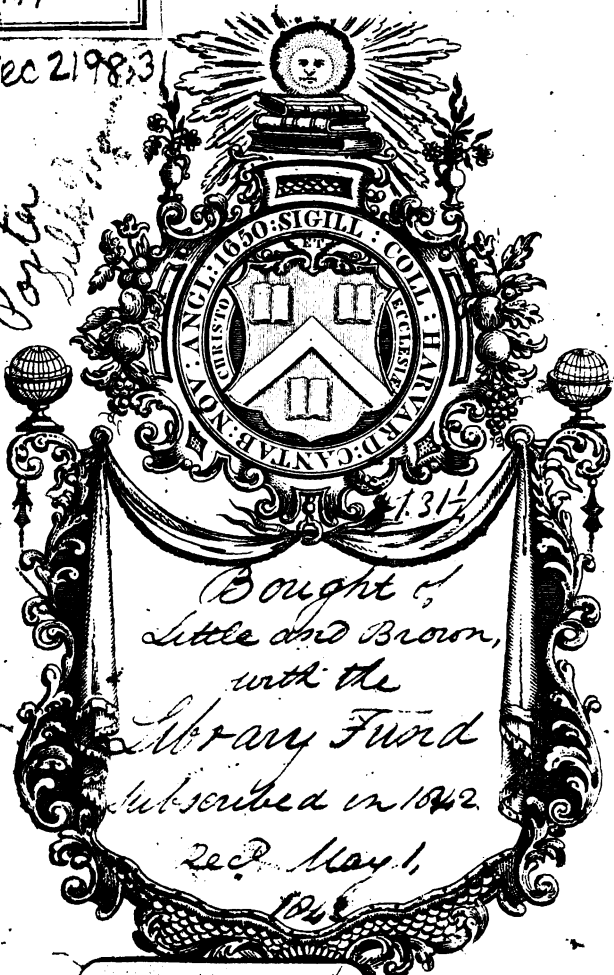 ec 2198,3
SIGILL : COLL : HARVARD : CANTAB : NOV : ANGL : 1650 :
CHRISTO ET ECCLESIÆ
1.31½
Bought of
Little and Brown,
with the
Library Fund
subscribed in 1842
Rec'd May 1,